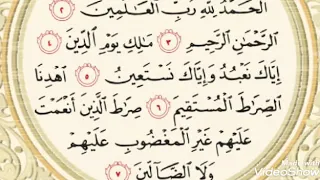 الْحَمْدُ لِلَّهِ رَبِّ الْعَالَمِينَ ٢
الرَّحْمَٰنِ الرَّحِيمِ ٣ مَالِكِ يَوْمِ الدِّينِ ٤
إِيَّاكَ نَعْبُدُ وَإِيَّاكَ نَسْتَعِينُ ٥ اهْدِنَا
الصِّرَاطَ الْمُسْتَقِيمَ ٦ صِرَاطَ الَّذِينَ أَنْعَمْتَ
عَلَيْهِمْ غَيْرِ الْمَغْضُوبِ عَلَيْهِمْ
وَلَا الضَّالِّينَ ٧
Made with
VideoShow